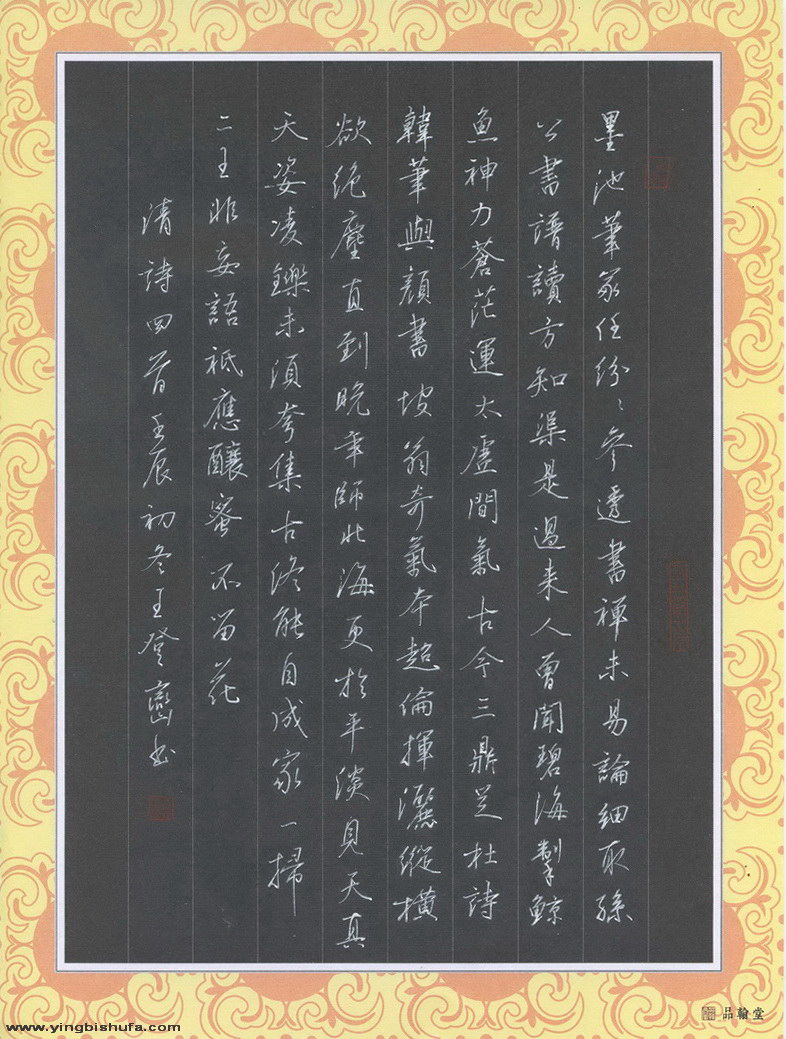 墨池筆冢任紛〻參透書禪未易論細取孫
公書譜讀方知渠是過来人曾聞碧海掣鲸
魚神力蒼茫運太虛間氣古今三鼎足杜詩
韓筆與顔書坡翁奇氣本超倫揮灑縱橫
欲絶塵直到晚年師北海更於平淡見天真
天姿凌鑠未須夸集古终能自成家一掃
二王非妄語祗應釀蜜不留花
清詩四首壬辰初冬王登巒书
www.yingbishufa.com
品翰堂